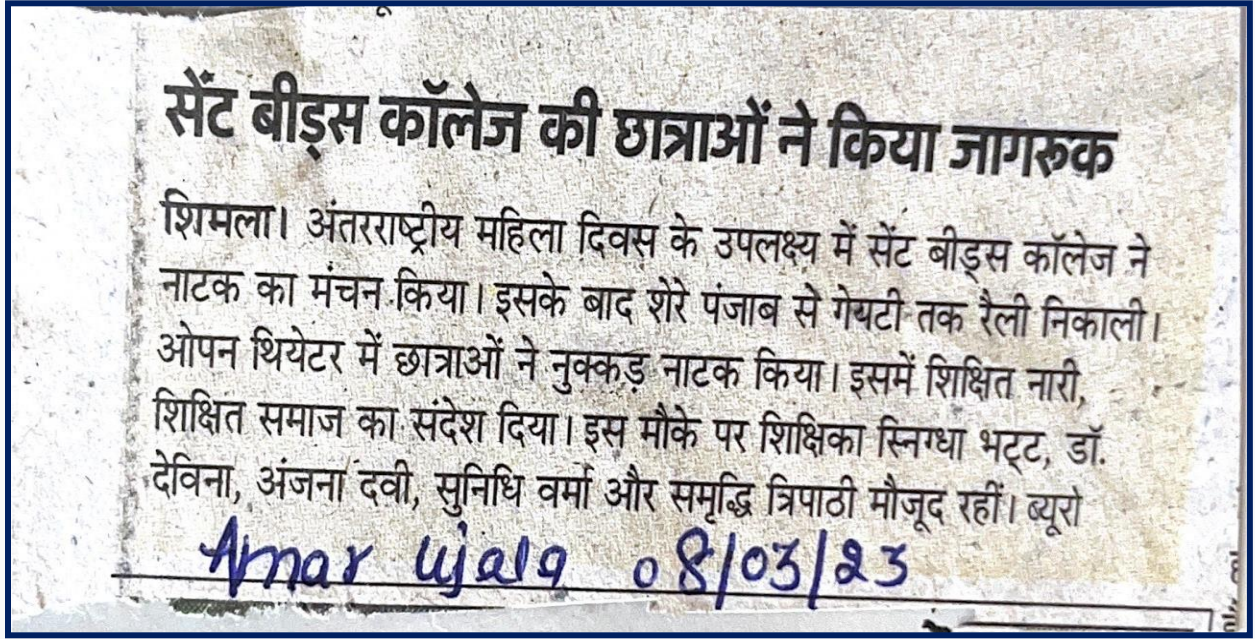 सेंट बीड्स कॉलेज की छात्राओं ने किया जागरूक
शिमला। अंतरराष्ट्रीय महिला दिवस के उपलक्ष्य में सेंट बीड्स कॉलेज ने
नाटक का मंचन किया। इसके बाद शेरे पंजाब से गेयटी तक रैली निकाली।
ओपन थियेटर में छात्राओं ने नुक्कड़ नाटक किया। इसमें शिक्षित नारी,
शिक्षित समाज का संदेश दिया। इस मौके पर शिक्षिका स्निग्धा भट्ट, डॉ.
देविना, अंजना दवी, सुनिधि वर्मा और समृद्धि त्रिपाठी मौजूद रहीं। ब्यूरो
Amar Ujala 08/03/23